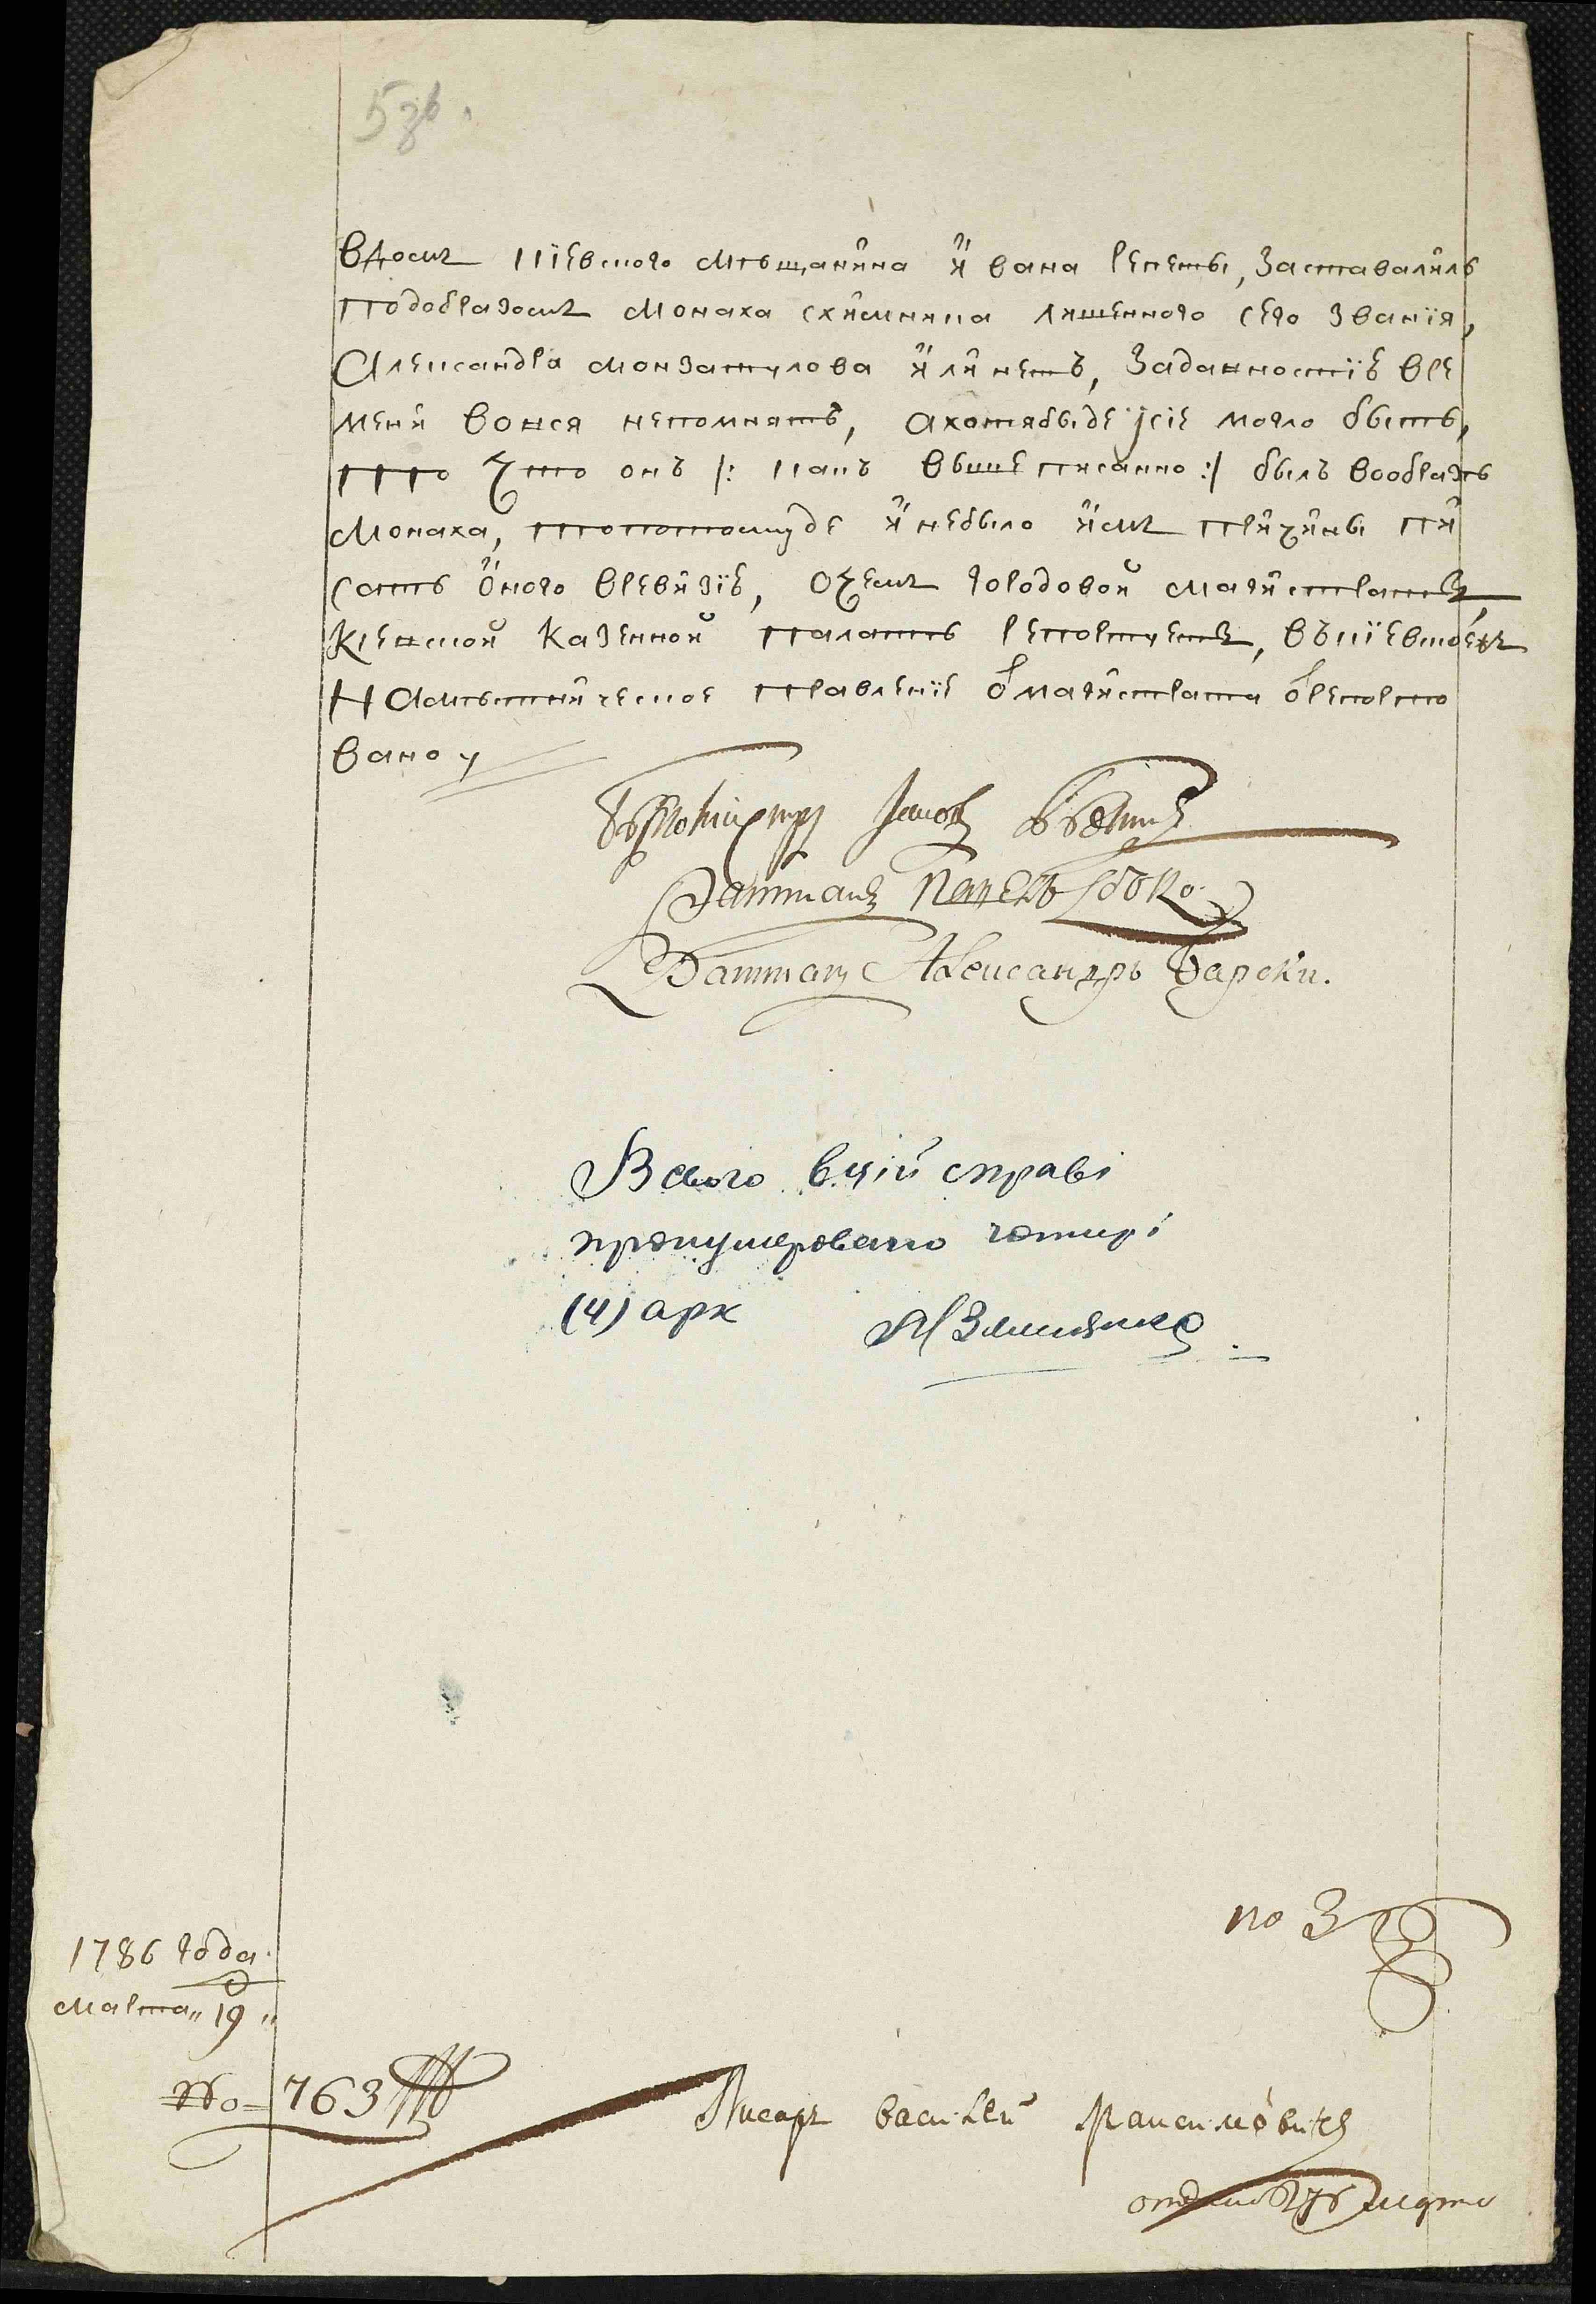 5 зв.
вдомъ кіевского мѣщанина Ивана Репеты, заставалиль
подобразомъ монаха схимника лишенного сего званія,
Александра Монзатулова или нетъ, заданностіе вре
мени вонся непомнятъ, ахотябыде јсіе могло быть,
ото что онъ /: какъ выше писанно :/ былъ вообразѣ
монаха, топотомуде инебыло имъ причины пи
сать оного вревизіе, очемъ городовой магистратъ,
Киевской казенной палатѣ репортуетъ, въкіевское
Намѣстническое правленіе о магистрата орепорто
вано
Бурмистръ Яковъ
Ратманъ Павелъ
Ратманъ Александръ Барскй.
Всього в цій справі
пронумеровано чотирі
(4) арк
1786 года
марта „ 19 „
No = 763
по 3
Писаръ Василей Максимовичъ